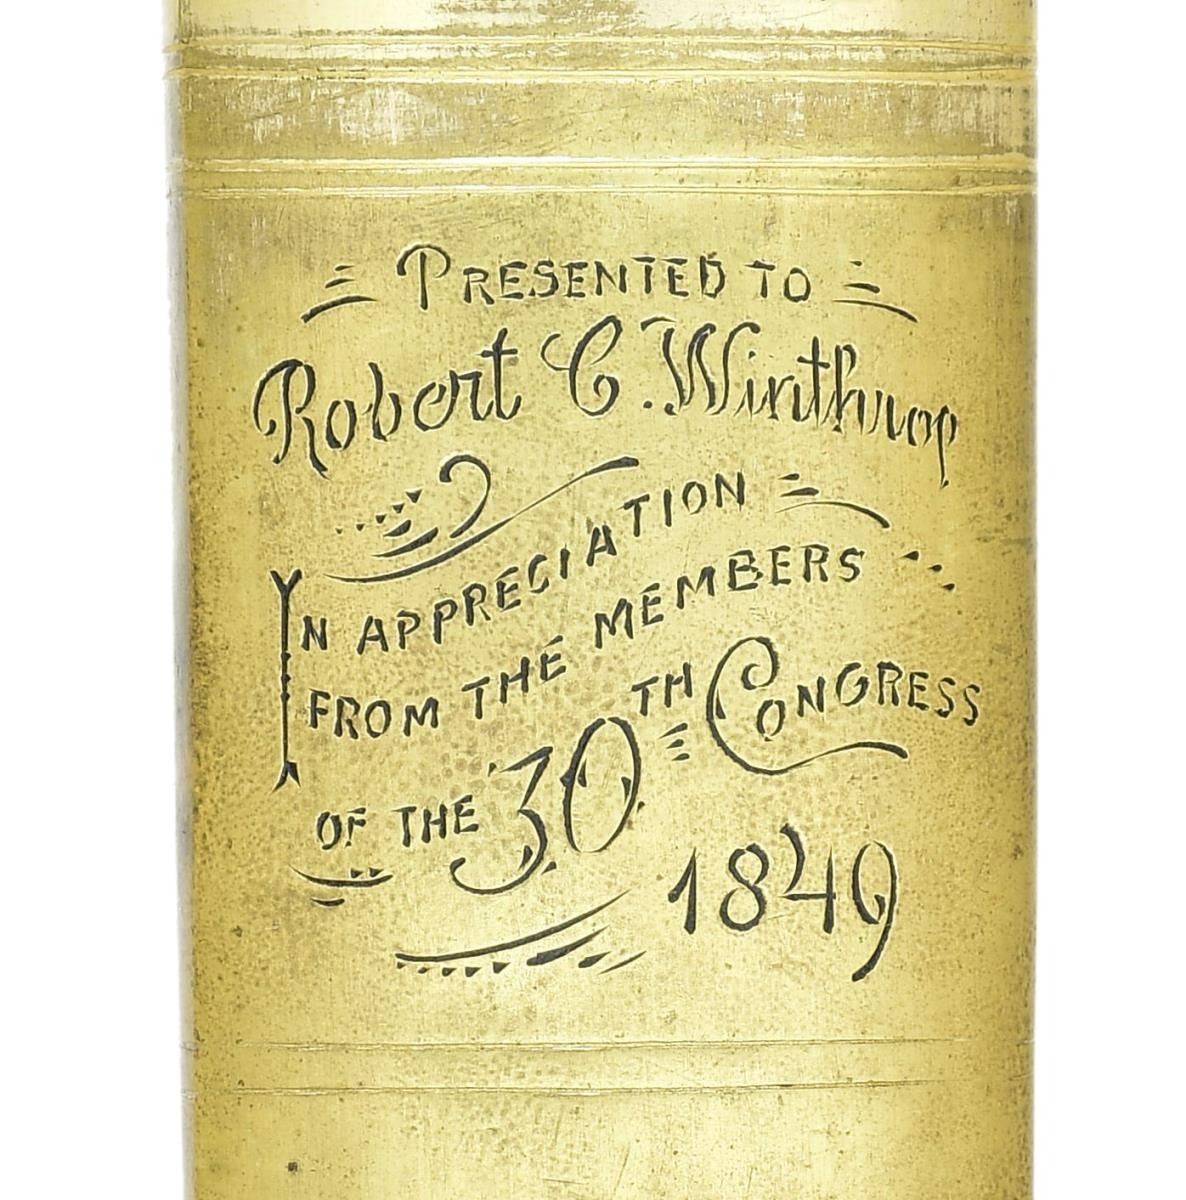 PRESENTED TO
Robert C. Winthrop
IN APPRECIATION
FROM THE MEMBERS
OF THE 30TH CONGRESS
1849